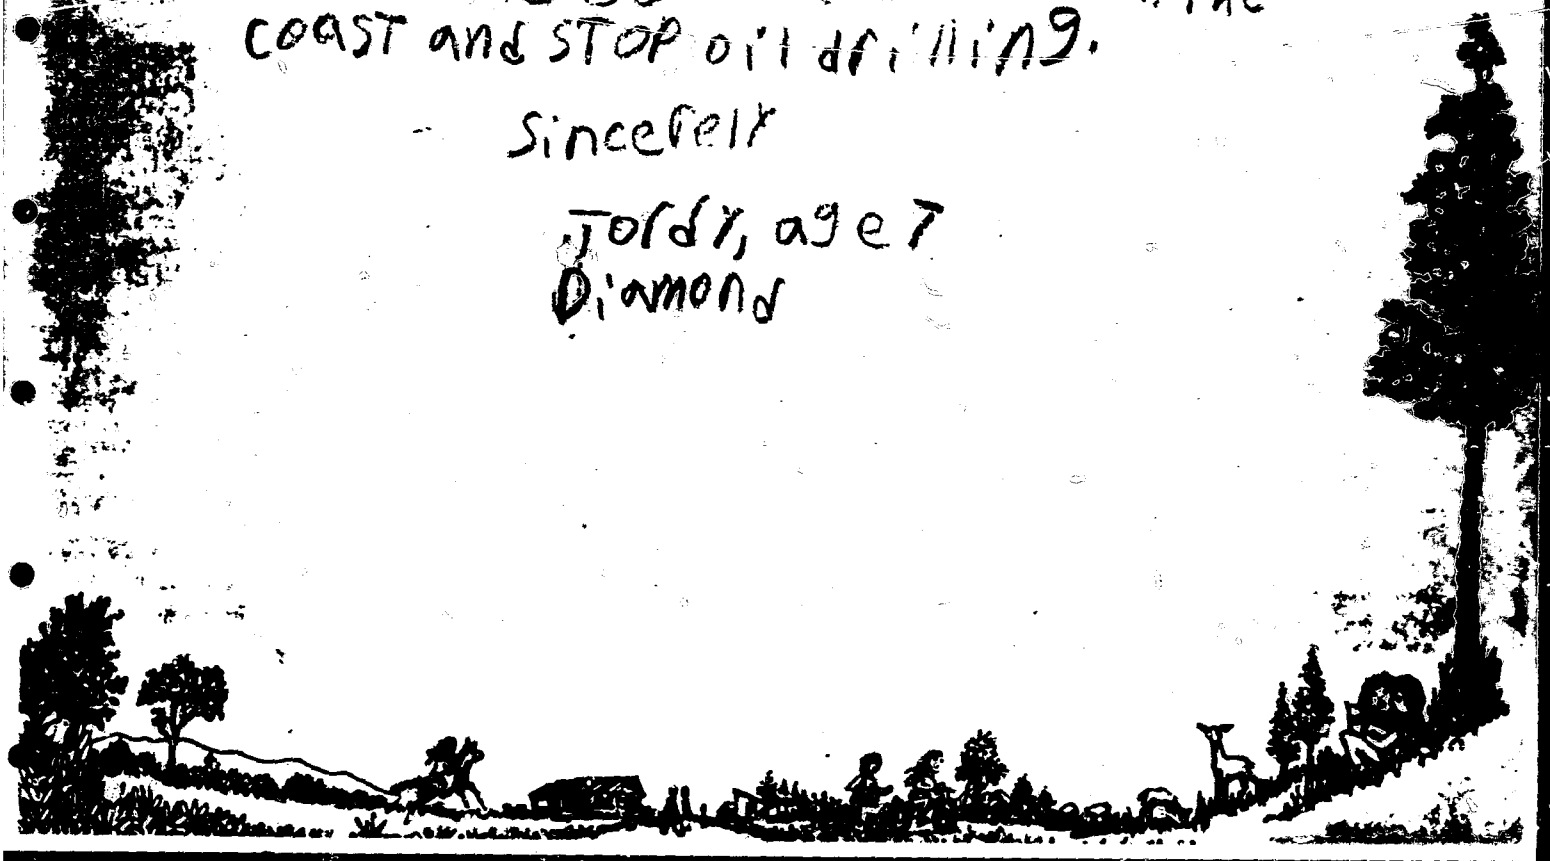 the
coAST and STOP oil drilling.
Sincerely
Jordy, age 7
Diamond